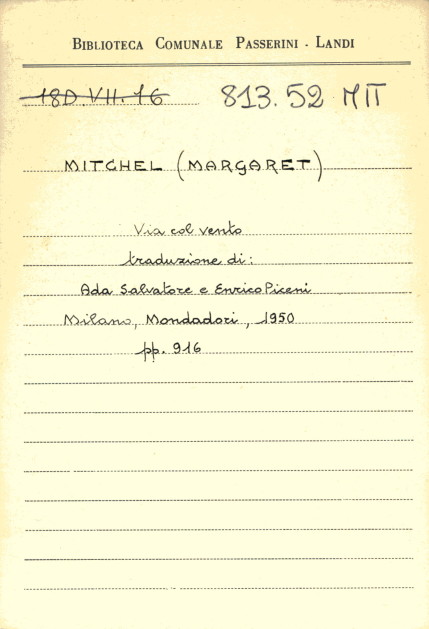 BIBLIOTECA COMUNALE PASSERINI - LANDI
18D.VII.16 813.52 MIT
MITCHEL (MARGARET)
Via col vento
traduzione di:
Ada Salvatore e Enrico Piceni
Milano, Mondadori, 1950
pp. 916